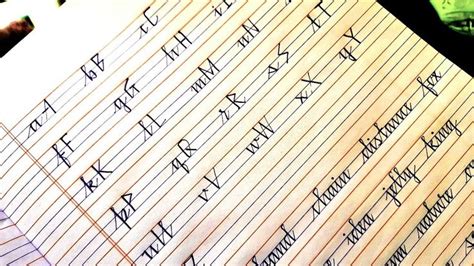 aA bB cC
fF gG hH
kK lL mM nN
pP qQ rR sS tT
uU vV wW xX yY
chain distance fox
idea jelly king
nature